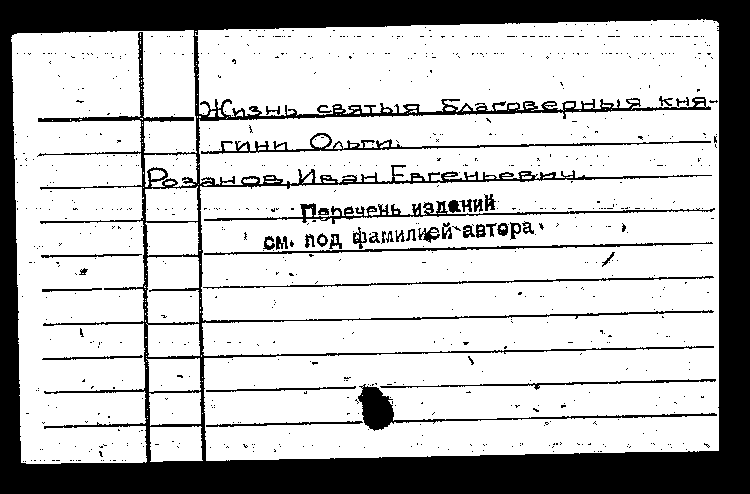 Жизнь святыя благоверныя кня-
гини Ольги.
Розанов, Иван Евгеньевич.
Перечень изданий
см. под фамилией автора